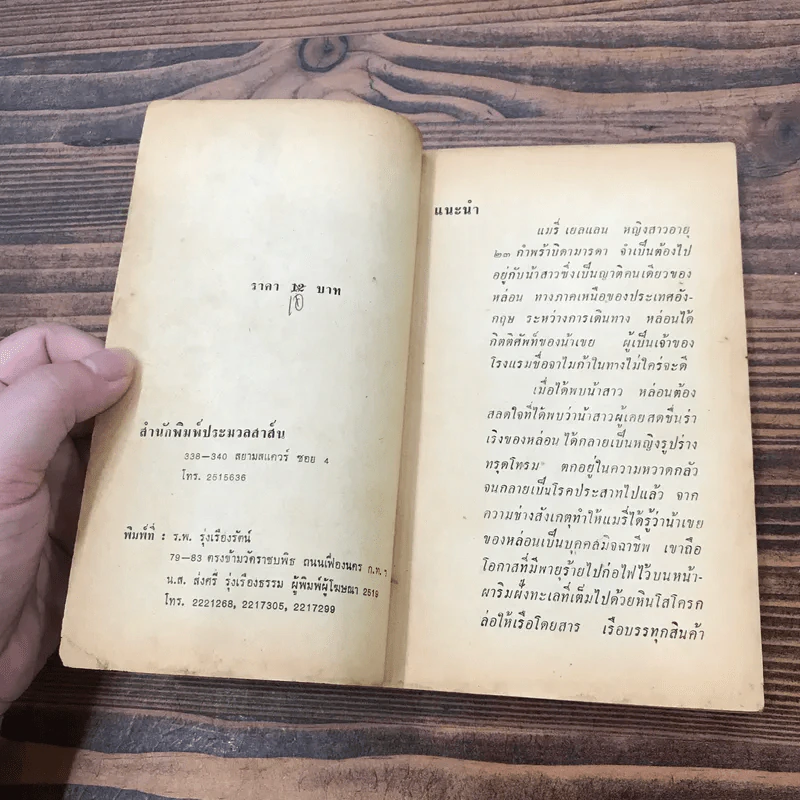 ราคา 12 บาท
10
สำนักพิมพ์ประมวลสาส์น
338-340 สยามสแควร์ ซอย 4
โทร. 2515636
พิมพ์ที่ : ร.พ. รุ่งเรืองรัตน์
79-83 ตรงข้ามวัดราชบพิธ ถนนเฟื่องนคร ก.ท. ๅ
น.ส. ส่งศรี รุ่งเรืองธรรม ผู้พิมพ์ผู้โฆษณา 2519
โทร. 2221268, 2217305, 2217299
แนะนำ
แมรี่ เยลแลน หญิงสาวอายุ
๒๓ กำพร้าบิดามารดา จำเป็นต้องไป
อยู่กับน้าสาวซึ่งเป็นญาติคนเดียวของ
หล่อน ทางภาคเหนือของประเทศอัง-
กฤษ ระหว่างการเดินทาง หล่อนได้
กิตติศัพท์ของน้าเขย ผู้เป็นเจ้าของ
โรงแรมชื่อจาไมก้าในทางไม่ใคร่จะดี
เมื่อได้พบน้าสาว หล่อนต้อง
สลดใจที่ได้พบว่าน้าสาวผู้เคยสดชื่นร่า
เริงของหล่อนได้กลายเป็นหญิงรูปร่าง
ทรุดโทรม ตกอยู่ในความหวาดกลัว
จนกลายเป็นโรคประสาทไปแล้ว จาก
ความช่างสังเกตุทำให้แมรี่ได้รู้ว่าน้าเขย
ของหล่อนเป็นบุคคลมิจฉาชีพ เขาถือ
โอกาสที่มีพายุร้ายไปก่อไฟไว้บนหน้า-
ผาริมฝั่งทะเลที่เต็มไปด้วยหินโสโครก
ล่อให้เรือโดยสาร เรือบรรทุกสินค้า